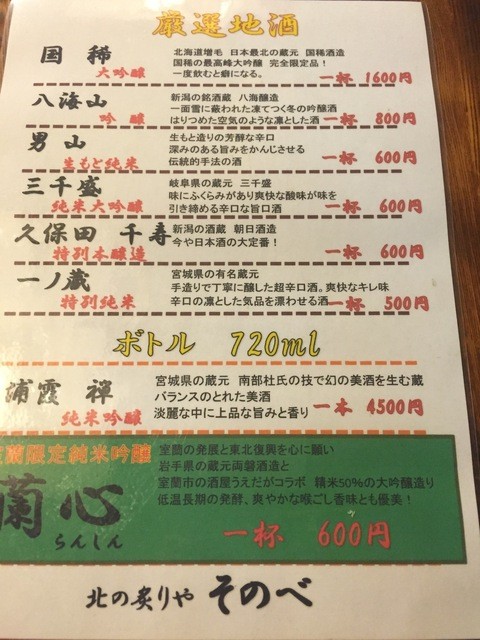 厳選地酒
国稀
大吟醸
北海道増毛 日本最北の蔵元 国稀酒造
国稀の最高峰大吟醸 完全限定品！
一度飲むと癖になる。
一杯 1600円
八海山
吟醸
新潟の銘酒蔵 八海醸造
一面雪に蔽われた凍てつく冬の吟醸酒
はりつめた空気のような凛とした酒
一杯 800円
男山
生もと純米
生もと造りの芳醇な辛口
深みのある旨みをかんじさせる
伝統的手法の酒
一杯 600円
三千盛
純米大吟醸
岐阜県の蔵元 三千盛
味にふくらみがあり爽快な酸味が味を
引き締める辛口な旨口酒
一杯 600円
久保田 千寿
特別本醸造
新潟の酒蔵 朝日酒造
今や日本酒の大定番！
一杯 600円
一ノ蔵
特別純米
宮城県の有名蔵元
手造りで丁寧に醸した超辛口酒。爽快なキレ味
辛口の凛とした気品を漂わせる酒
一杯 500円
ボトル 720ml
浦霞 禅
純米吟醸
宮城県の蔵元 南部杜氏の技で幻の美酒を生む蔵
バランスのとれた美酒
淡麗な中に上品な旨みと香り
一本 4500円
蘭限定純米吟醸
蘭心
らんしん
室蘭の発展と東北復興を心に願い
岩手県の蔵元両磐酒造と
室蘭市の酒屋うえだがコラボ 精米50%の大吟醸造り
低温長期の発酵、爽やかな喉ごし香味とも優美！
一杯 600円
北の炙りや そのべ